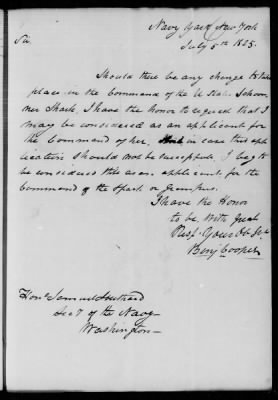 Navy Yard New York
July 5th 1825.
Sir
Should there be any change to take
place in the Command of the U. States Schoo-
ner Shark, I have the honor to request that I
may be considered as an applicant for
the Command of her, in case this app
lication should not be successful, I beg to
be considered as an applicant for the
command of the Spark or Grampus.
I have the Honor
to be With Great
Respt. Your Ob. St.
Benj Cooper
Honl. Samuel Southard
Secy of the Navy
Washington